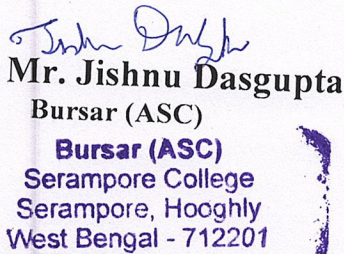 Mr. Jishnu Dasgupta
Bursar (ASC)
Bursar (ASC)
Serampore College
Serampore, Hooghly
West Bengal - 712201